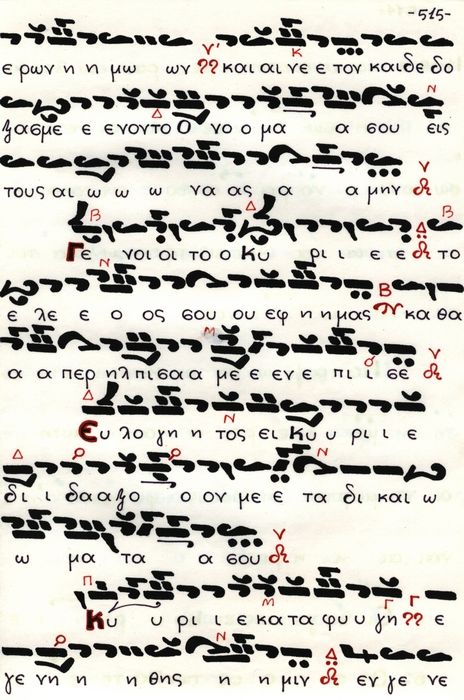 -515-
ε ρων η η μω ων και αι νε ε τον και δε δο
ξασμε ε ε νον το Ο νο ο μα α α σου εις
τους αι ω ω ω να ας α α μην
Γ νοι οι το ο Κυ ρι ι ε ε το
ε λε ε ο ος σου ου εφ η η μας κα θα
α α περ ηλ πι σα α με ε εν ε πι ι σε
Ευ λο γη η τος ει Κυ υ ρι ι ε
δι ι δα α ξο ο ον με ε τα δι και ω
ω μα τα α σου
Κυ υ ρι ι ε κα τα φυ υ γη ε
γε νη η η θης η μιν εν γε νε